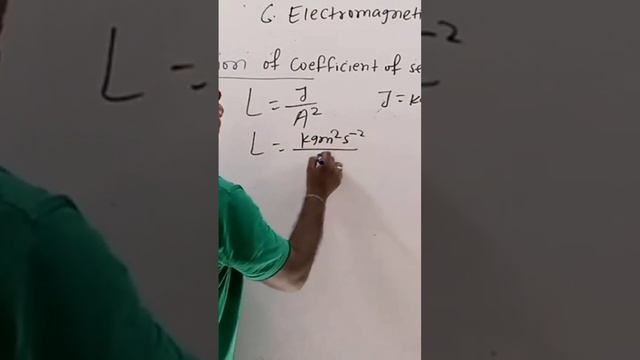 6. Electromagneti
ion of coefficient of se
L = J/A² J = k
L = kgm²s⁻²